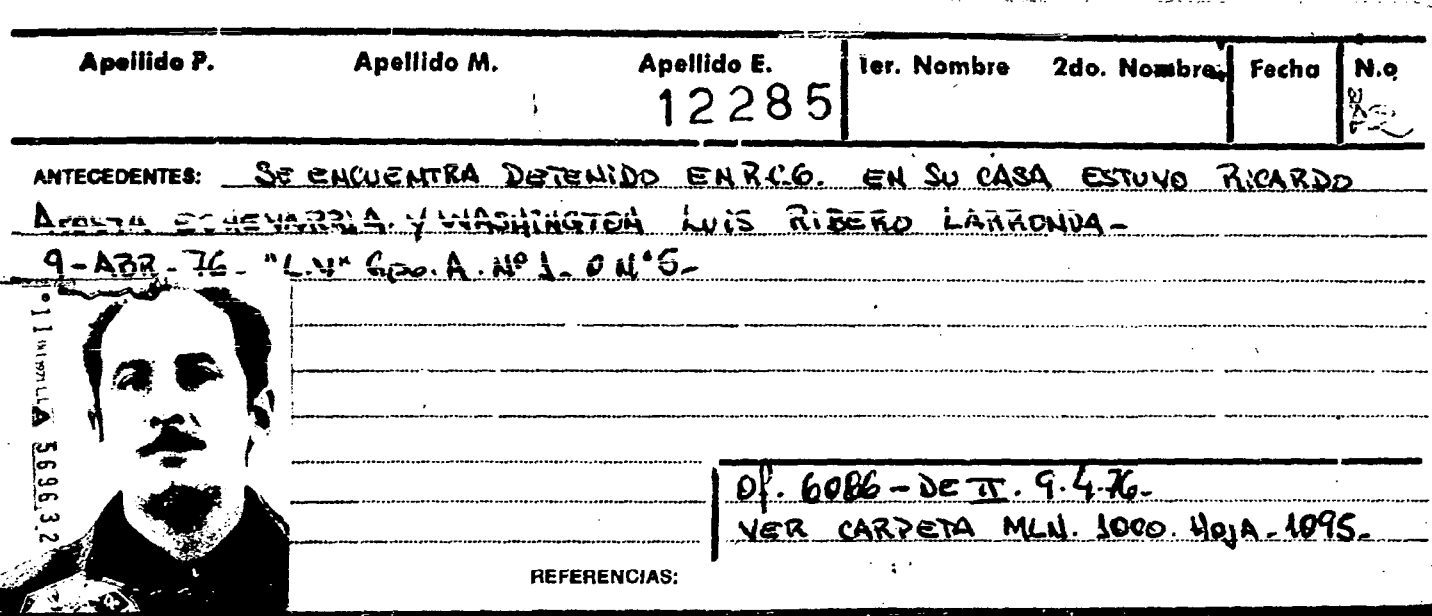 Apellido P. Apellido M. Apellido E. 1er. Nombre 2do. Nombre Fecha N.o
12285
ANTECEDENTES: SE ENCUENTRA DETENIDO EN R.C.6. EN SU CASA ESTUVO RICARDO
ACOSTA ECHEVARRIA. Y WASHINGTON LUIS RIBERO LARRONDA-
9-ABR-76- "L.V" Gpo. A. Nº 1-
A 569632
Of. 6086-DE II. 9.4.76-
VER CARPETA MLN. 1000. HOJA-1095-
REFERENCIAS: